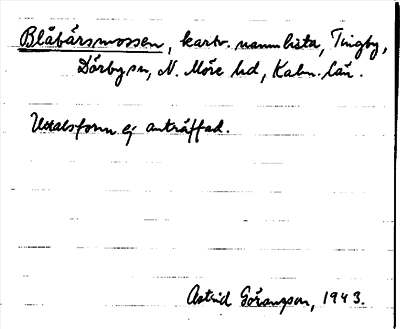 Blåbärsmossen, kartv. namnlista, Tingby,
Dörby sn, N. Möre hd, Kalm. län.
Uttalsform ej anträffad.
Astrid Göransson, 1943.